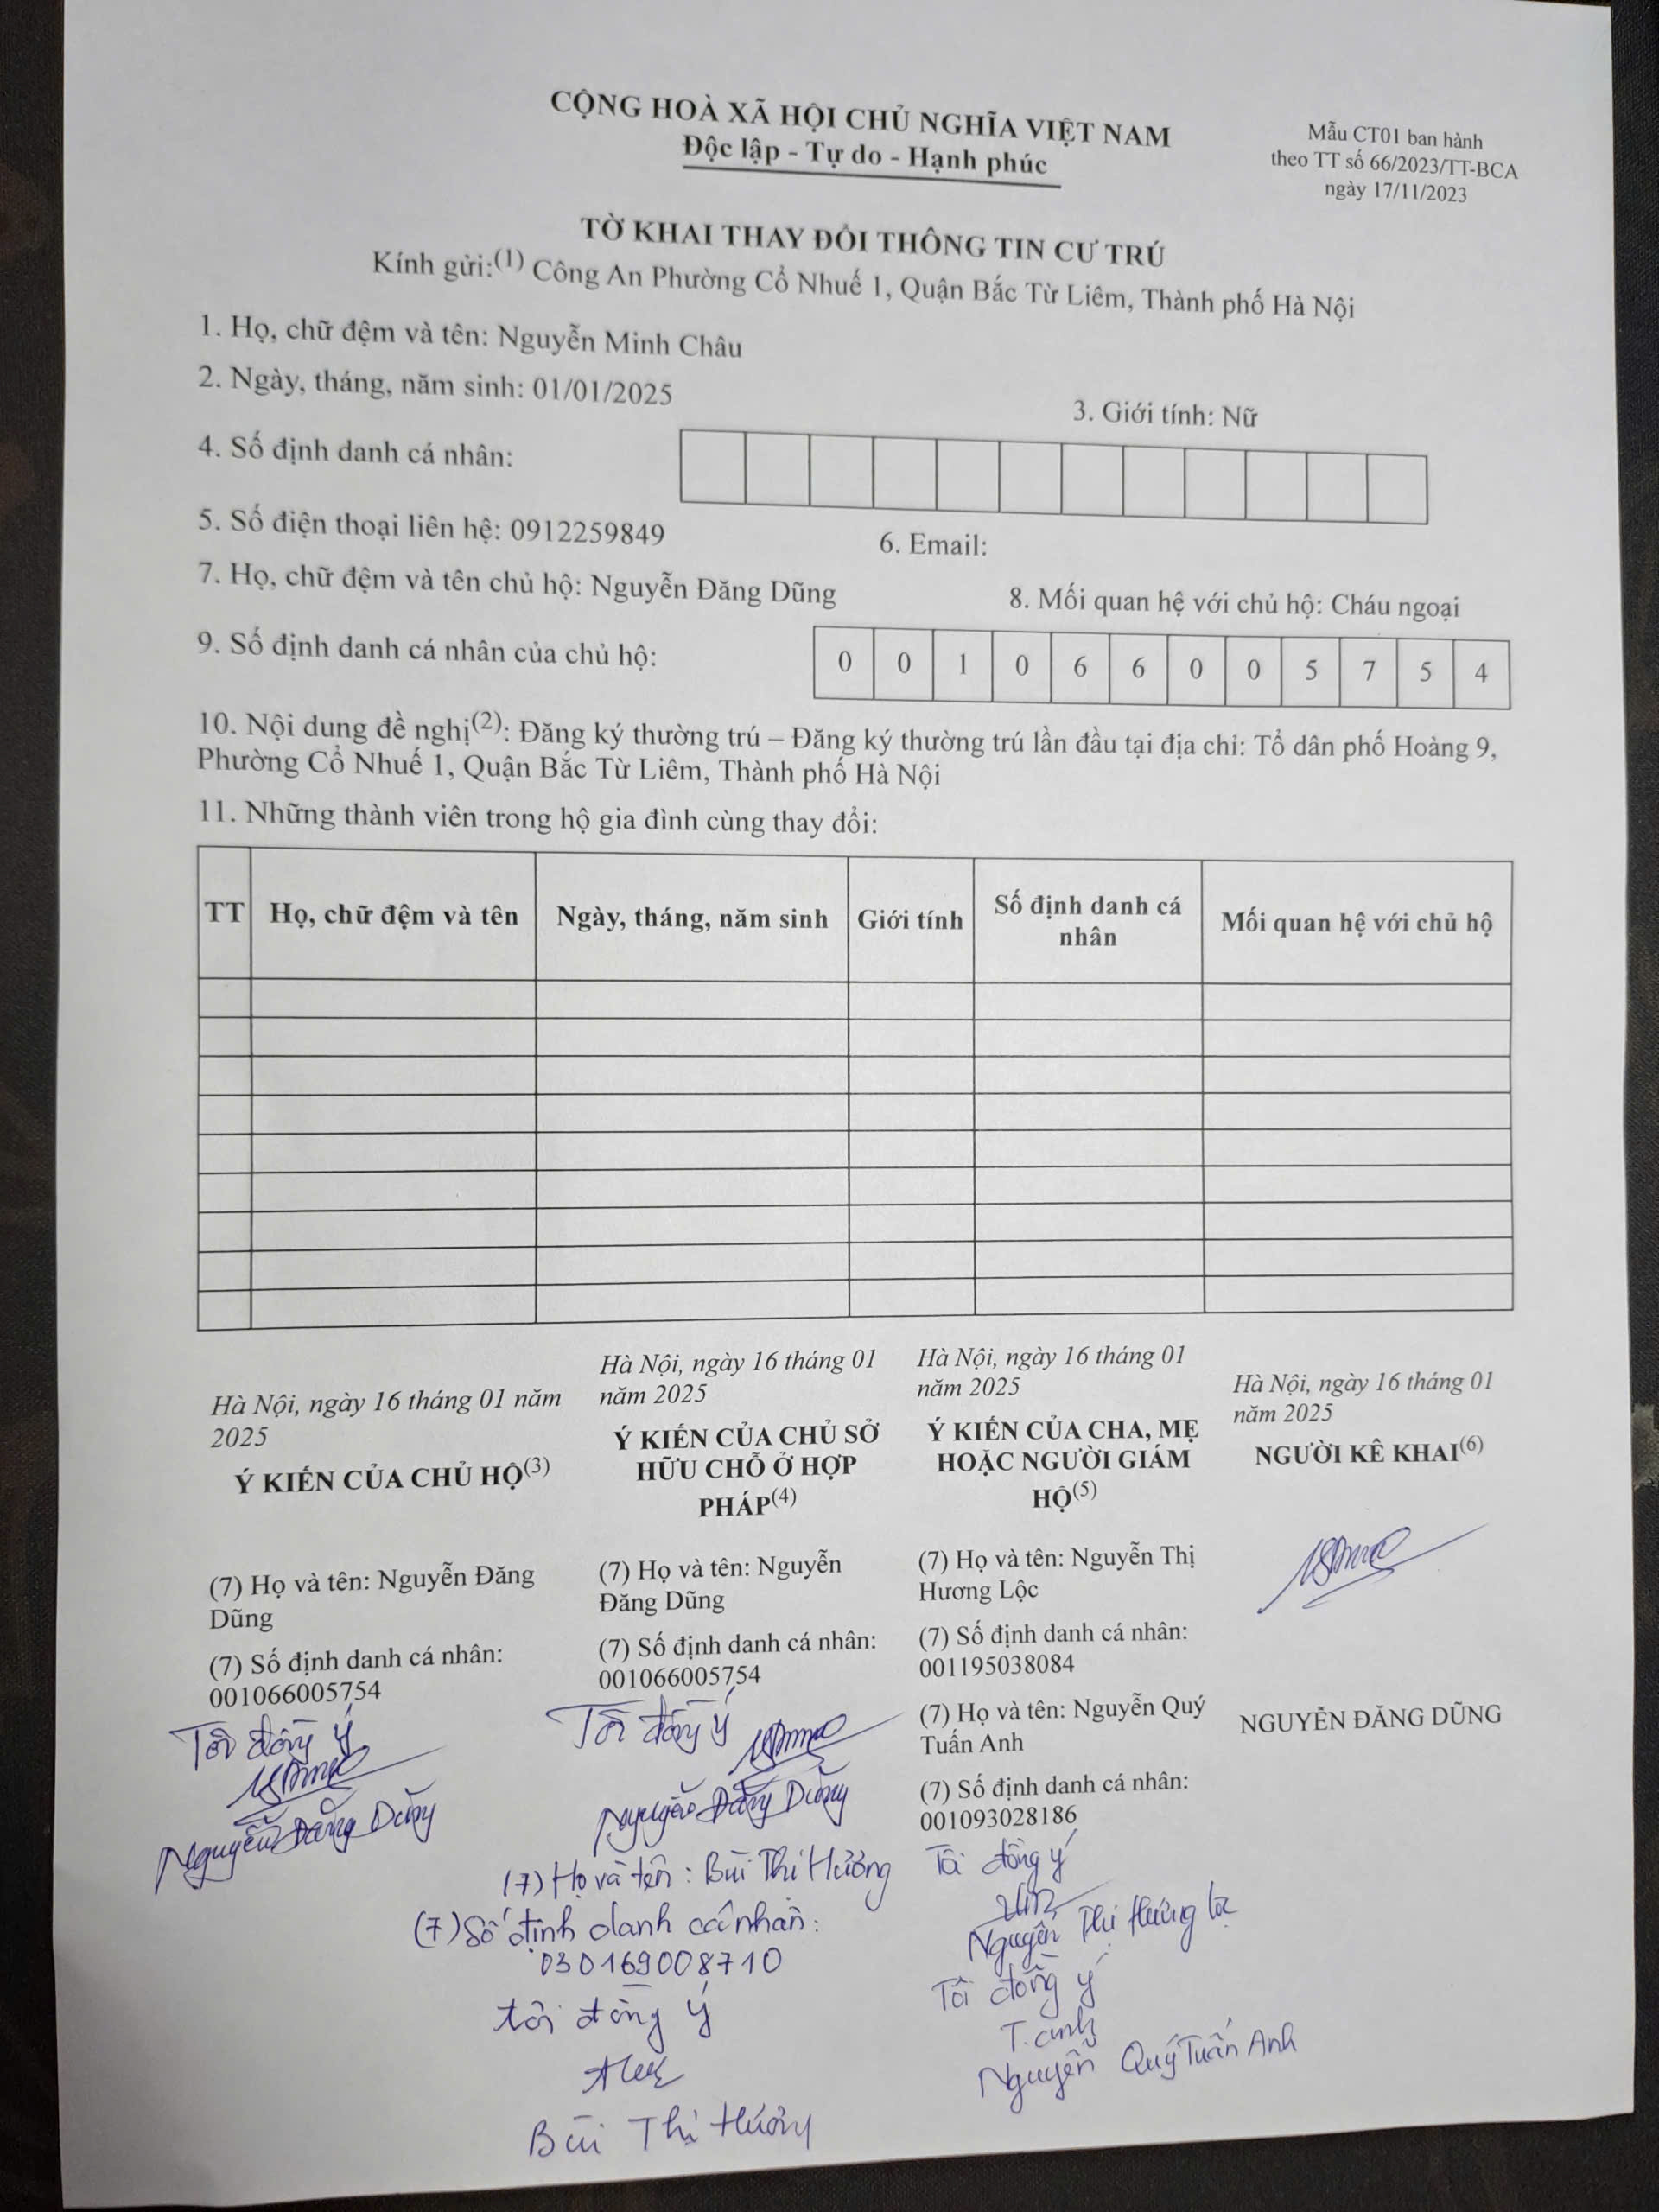 CỘNG HOÀ XÃ HỘI CHỦ NGHĨA VIỆT NAM
Độc lập - Tự do - Hạnh phúc
Mẫu CT01 ban hành
theo TT số 66/2023/TT-BCA
ngày 17/11/2023
TỜ KHAI THAY ĐỔI THÔNG TIN CƯ TRÚ
Kính gửi:(1) Công An Phường Cổ Nhuế 1, Quận Bắc Từ Liêm, Thành phố Hà Nội
1. Họ, chữ đệm và tên: Nguyễn Minh Châu
2. Ngày, tháng, năm sinh: 01/01/2025
3. Giới tính: Nữ
4. Số định danh cá nhân:
5. Số điện thoại liên hệ: 0912259849
6. Email:
7. Họ, chữ đệm và tên chủ hộ: Nguyễn Đăng Dũng
8. Mối quan hệ với chủ hộ: Cháu ngoại
9. Số định danh cá nhân của chủ hộ: 0 0 1 0 6 6 0 0 5 7 5 4
10. Nội dung đề nghị(2): Đăng ký thường trú – Đăng ký thường trú lần đầu tại địa chỉ: Tổ dân phố Hoàng 9,
Phường Cổ Nhuế 1, Quận Bắc Từ Liêm, Thành phố Hà Nội
11. Những thành viên trong hộ gia đình cùng thay đổi:
TT Họ, chữ đệm và tên Ngày, tháng, năm sinh Giới tính Số định danh cá nhân Mối quan hệ với chủ hộ
Hà Nội, ngày 16 tháng 01 năm
2025
Ý KIẾN CỦA CHỦ HỘ(3)
(7) Họ và tên: Nguyễn Đăng
Dũng
(7) Số định danh cá nhân:
001066005754
Tôi đồng ý
Nguyễn Đăng Dũng
Hà Nội, ngày 16 tháng 01
năm 2025
Ý KIẾN CỦA CHỦ SỞ
HỮU CHỖ Ở HỢP
PHÁP(4)
(7) Họ và tên: Nguyễn
Đăng Dũng
(7) Số định danh cá nhân:
001066005754
Tôi đồng ý
Nguyễn Đăng Dũng
(7) Họ và tên: Bùi Thị Hường
(7) Số định danh cá nhân:
030169008710
tôi đồng ý
Bùi Thị Hường
Hà Nội, ngày 16 tháng 01
năm 2025
Ý KIẾN CỦA CHA, MẸ
HOẶC NGƯỜI GIÁM
HỘ(5)
(7) Họ và tên: Nguyễn Thị
Hương Lộc
(7) Số định danh cá nhân:
001195038084
(7) Họ và tên: Nguyễn Quý
Tuấn Anh
(7) Số định danh cá nhân:
001093028186
Tôi đồng ý
Nguyễn Thị Hương Lộc
Tôi đồng ý
T.anh
Nguyễn Quý Tuấn Anh
Hà Nội, ngày 16 tháng 01
năm 2025
NGƯỜI KÊ KHAI(6)
NGUYỄN ĐĂNG DŨNG